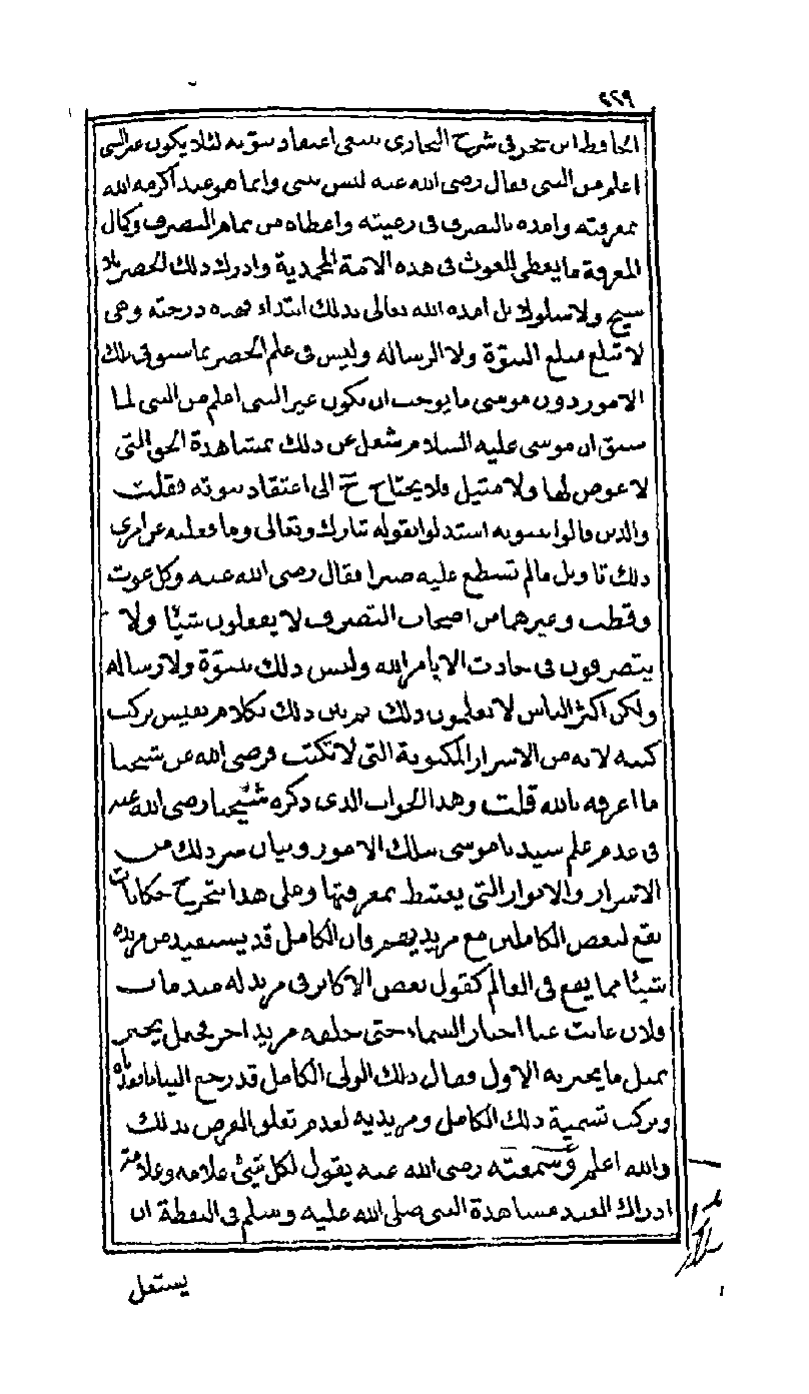 ٢٢٩
الحافظ ابن حجر في شرح البخاري ينبغي اعتقاد نبوته لئلا يكون غير النبي
اعلم من النبي فقال رضي الله عنه ليس بنبي وانما هو عبد اكرمه الله
بمعرفته وامده بالتصرف في رعيته واعطاه من تمام التصرف وكمال
المعرفة ما يعطي للغوث في هذه الامة المحمدية وادرك ذلك الخضر بلا
شيخ ولا سلوك بل امده الله تعالى بذلك ابتداء فهذه درجته وهي
لا تبلغ مبلغ النبوّة ولا الرسالة وليس في علم الخضر بما في تلك
الامور دون موسى ما يوجب ان يكون غير النبي اعلم من النبي لما
سبق ان موسى عليه السلام شغل عن ذلك بمشاهدة الحق التي
لا عوض لها ولا مثيل فلا يحتاج ح الى اعتقاد نبوته فقلت
والذين قالوا بنبوته استدلوا بقوله تبارك وتعالى وما فعلته عن امري
ذلك تاويل مالم تسطع عليه صبرا فقال رضي الله عنه وكل غوث
وقطب وغيرهما من اصحاب التصرف لا يفعلون شيئا ولا
يتصرفون في حادث الا بامر الله وليس ذلك بنبوّة ولا رسالة
ولكن اكثر الناس لا يعلمون ذلك ثم بين ذلك بكلام نفيس تركت
كتبه لانه من الاسرار المكتوبة التي لا تكتب فرضي الله عن شيخنا
ما اعرفه بالله قلت وهذا الجواب الذي ذكره شيخنا رضي الله عنه
في عدم علم سيدنا موسى بتلك الامور وبيان سر ذلك من
الاسرار والانوار التي يغتبط بمعرفتها وعلى هذا تتخرج حكايات
تقع لبعض الكاملين مع مريديهم فان الكامل قد يستفيد من مريده
شيئا مما يقع في العالم كقول بعض الاكابر في مريد له منذ مات
فلان غابت عنا اخبار السماء حتى خلفه مريد اخر فجعل يخبر
بمثل ما يخبر به الاول فقال ذلك الولي الكامل قد رجع الينا ما فقدناه
وتركت تسمية ذلك الكامل ومريديه لعدم تعلق الغرض بذلك
والله اعلم وسمعته رضي الله عنه يقول لكل شيئ علامة وعلامة
ادراك العبد مشاهدة النبي صلى الله عليه وسلم في اليقظة ان
يستعل